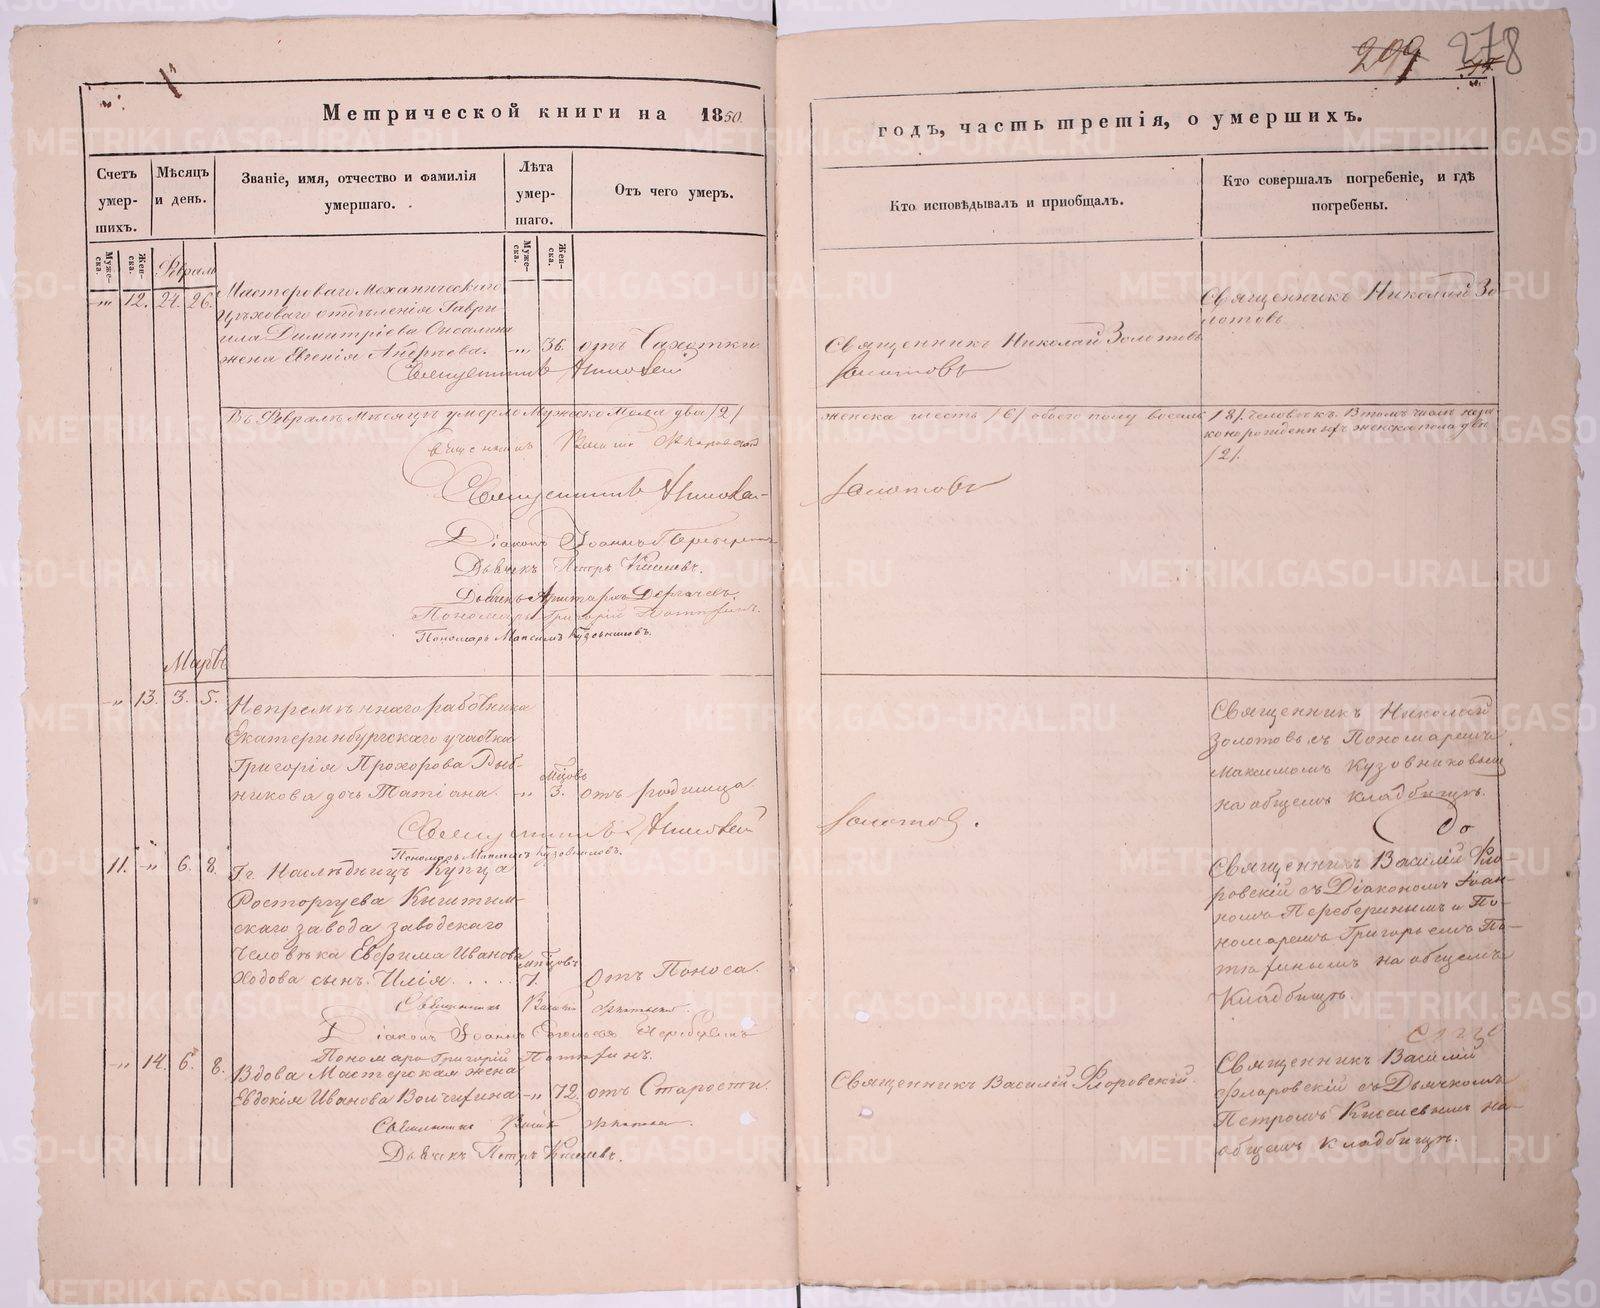 299 278
Метрической книги на 1850
годъ, часть третія, о умершихъ.
Счетъ умер- шихъ.
Мѣсяцъ и день.
Званіе, имя, отчество и фамилія умершаго.
Лѣта умер- шаго.
Отъ чего умеръ.
Кто исповѣдывалъ и пріобщалъ.
Кто совершалъ погребеніе, и гдѣ погребены.
Муже- ска.
Жен- ска.
Муже- ска.
Жен- ска.
12. 24. 26.
Мастероваго Механическаго
цѣховаго отдѣленія Гаври
ила Димитріева
жена Евгенія Андреева. 36. отъ Чахотки
Священникъ Николай Золотовъ
Золотовъ
Священникъ Николай Зо
лотовъ
Въ Февралѣ мѣсяцѣ умерло Мужеска Пола два /2/
женска шесть /6/ обоего полу восемь /8/. Человѣкъ. В томъ числѣ неза-
конорожденныхъ женска пола двѣ
/2/.
Священникъ Василій Флоровскій
Священникъ Николай
Золотовъ
Діаконъ Іоаннъ Переберинъ
Дьячекъ Петръ Киселевъ.
Дьячекъ
Пономарь Григорій Потѣфинъ.
Пономарь Максимъ Кузовниковъ.
Мартъ
13. 3. 5.
Непремѣннаго работника
Екатеринбургскаго участка
Григорія Прохорова Рыб-
никова дочь Татіана. 3. отъ родимца
Священникъ Николай
Золотов.
Священникъ Николай
Золотовъ съ Пономаремъ
Максимомъ Кузовниковымъ
на общемъ кладбищѣ.
Пономарь Максимъ Кузовниковъ.
11. 6. 8.
Гг. Наслѣдницъ Купца
Расторгуева Кыштым-
скаго завода заводскаго
Человѣка Евфима Иванова
Ходова сынъ Илія. 7. отъ Поноса.
Священникъ Василій Фло
ровскій съ Діакономъ Іоан-
номъ Переберинымъ и По-
номаремъ Григорьемъ По-
тѣфинымъ на общемъ
Кладбищѣ.
Священникъ Василій
Діаконъ Іоаннъ Переберинъ
Пономарь Григорій Потѣфинъ.
14. 6. 8.
Вдова Мастерская жена
Евдокія Иванова 72. отъ Старости.
Священникъ Василій Флоровскій.
Священникъ Василій
Флоровскій съ Дьячкомъ
Петромъ Киселевымъ на
общемъ кладбищѣ.
Священникъ
Дьячекъ Петръ Киселевъ.
METRIKI.GASO-URAL.RU